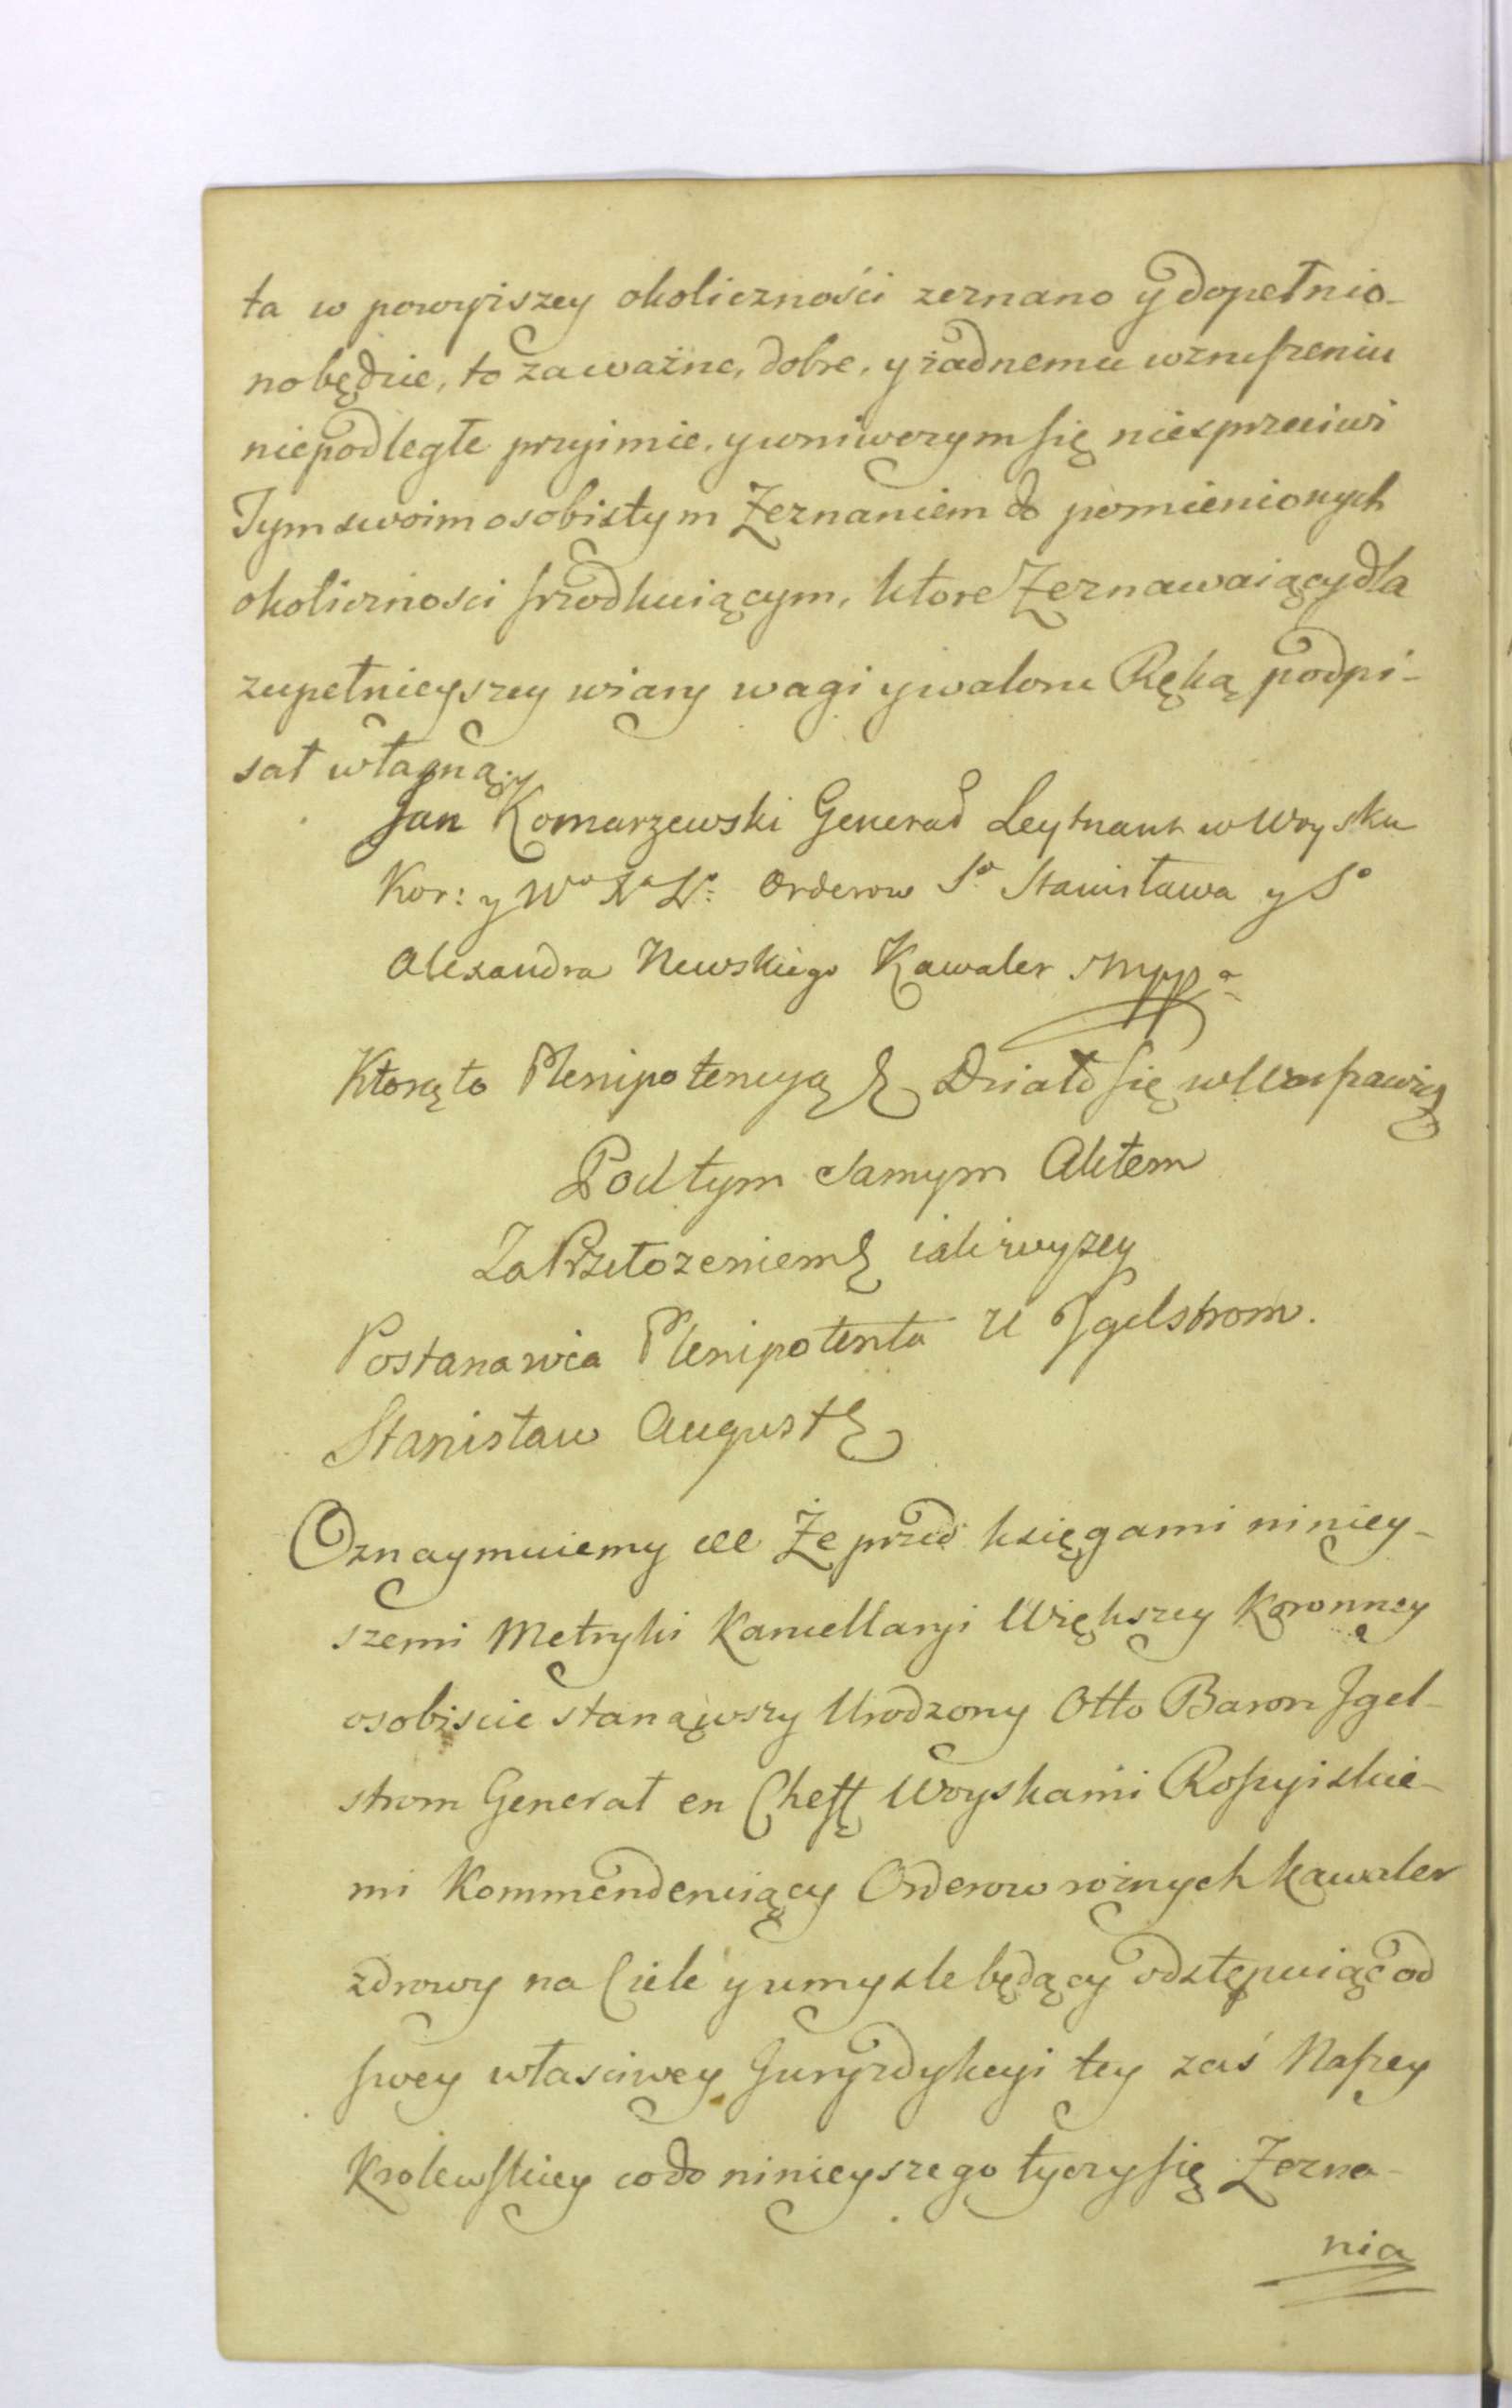 ta w powyiszey okoliczności zeznano y dopełnio-
no będzie, to za ważne, dobre, y żadnemu wzruszeniu
niepodległe przyimie, y wniwczym się niesprzeciwi
Tym swoim osobistym Zeznaniem do pomienionych
okoliczności srzodkuiącym, ktore Zeznawaiący dla
zupełnieyszey wiary wagi y waloru Ręką podpi-
sał własną.
Jan Komarzewski Generał Leytnant w Woysku
Kor: y Wo Xa Lo: Orderow So Stanisława y So
Alexandra Newskiego Kawaler mppa
Ktorą to Plenipotencyą & Działo się w Warszawie
Pod tym samym Aktem
Za Przełożeniem & iak wyzey
Postanawia Plenipotenta U Jgelstrom.
Stanisław August &
Oznaymuiemy &c Że przed księgami niniey-
szemi Metryki Kancellaryi Większey Koronney
osobiscie stanąwszy Urodzony Otto Baron Jgel-
strom Generał en Cheff Woyskami Rossyiskie-
mi Kommenderuiący Orderow rożnych Kawaler
zdrowy na Ciele y umysle będący odstępuiąc od
swey własciwey Juryzdykcyi tey zaś Naszey
Krolewskiey co do ninieyszego tyczy się Zezna-
nia